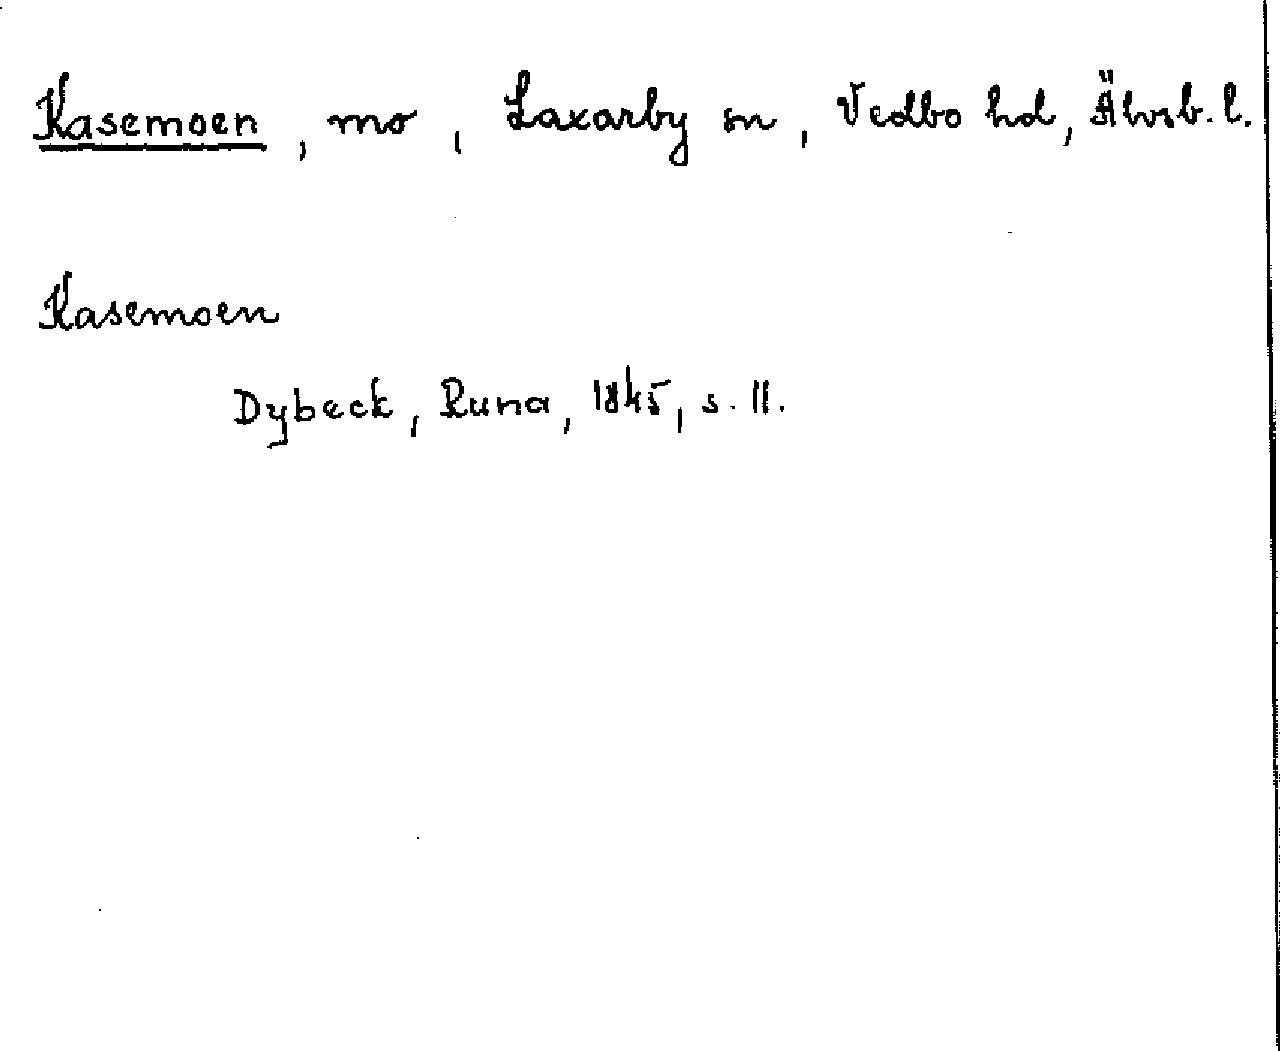 Kasemoen, mo, Laxarby sn, Vedbo hd, Älvsb. l.
Kasemoen
Dybeck, Runa, 1845, s. 11.